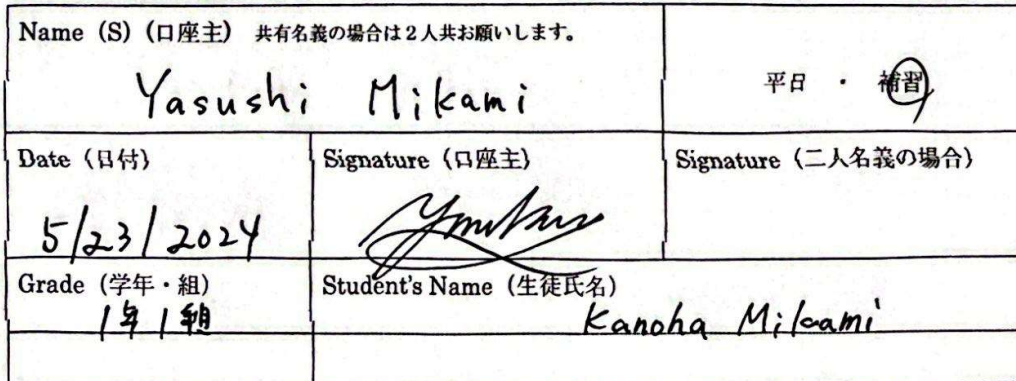 Name (S) (口座主) 共有名義の場合は2人共お願いします。
Yasushi Mikami
平日 ・ 補習
Date (日付) Signature (口座主) Signature (二人名義の場合)
5/23/2024
Grade (学年・組) Student's Name (生徒氏名)
1年1組 Kanoha Mikami